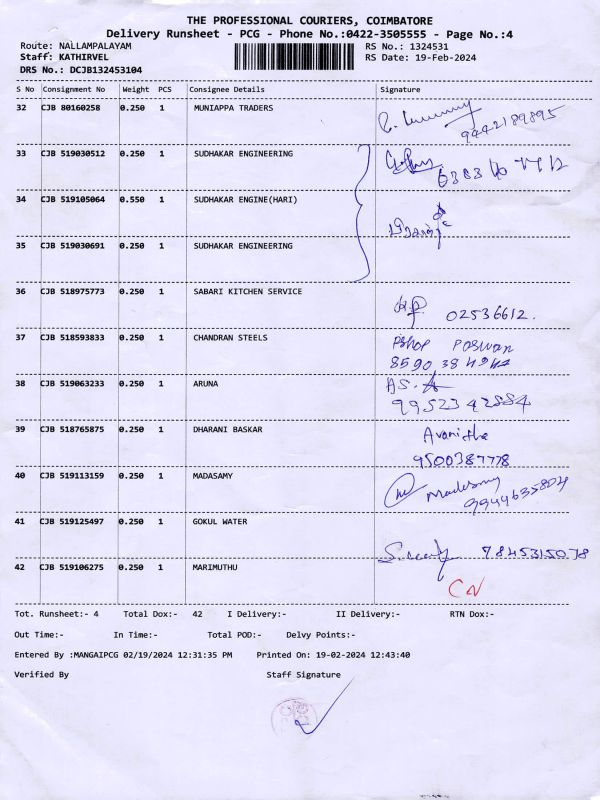 THE PROFESSIONAL COURIERS, COIMBATORE
Delivery Runsheet - PCG - Phone No.:0422-3505555 - Page No.:4
Route: NALLAMPALAYAM RS No.: 1324531
Staff: KATHIRVEL RS Date: 19-Feb-2024
DRS No.: DCJB132453104
S No Consignment No Weight PCS Consignee Details Signature
32 CJB 80160258 0.250 1 MUNIAPPA TRADERS
9442189895
33 CJB 519030512 0.250 1 SUDHAKAR ENGINEERING
34 CJB 519105064 0.550 1 SUDHAKAR ENGINE(HARI)
35 CJB 519030691 0.250 1 SUDHAKAR ENGINEERING
36 CJB 518975773 0.250 1 SABARI KITCHEN SERVICE
02536612.
37 CJB 518593833 0.250 1 CHANDRAN STEELS
38 CJB 519063233 0.250 1 ARUNA
9952342884
39 CJB 518765875 0.250 1 DHARANI BASKAR
9500387778
40 CJB 519113159 0.250 1 MADASAMY Madasamy
41 CJB 519125497 0.250 1 GOKUL WATER
9845315078
42 CJB 519106275 0.250 1 MARIMUTHU
CN
Tot. Runsheet:- 4 Total Dox:- 42 I Delivery:- II Delivery:- RTN Dox:-
Out Time:- In Time:- Total POD:- Delvy Points:-
Entered By :MANGAIPCG 02/19/2024 12:31:35 PM Printed On: 19-02-2024 12:43:40
Verified By Staff Signature